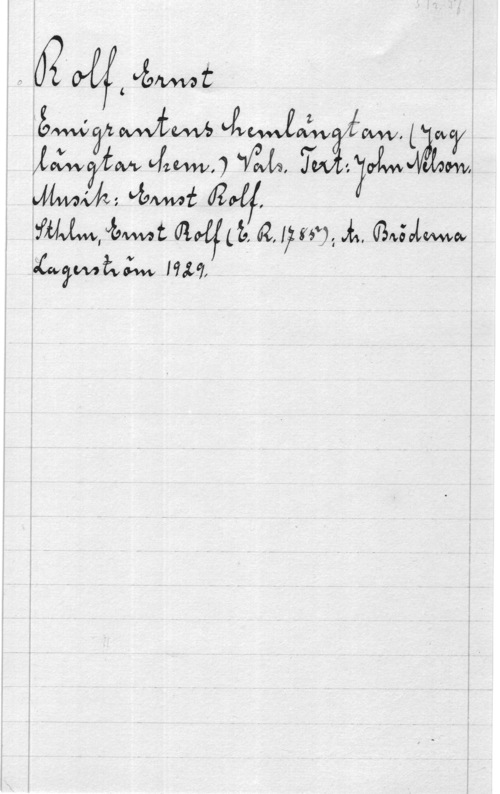 Rolf, Ernst
Emigrantens hemlängtan. (Jag
längtar hem.) Vals. Text: John Nelson.
Musik: Ernst Rolf.
Sthlm, Ernst Rolf (E. R. 1785), tr. Bröderna
Lagerström 1929.